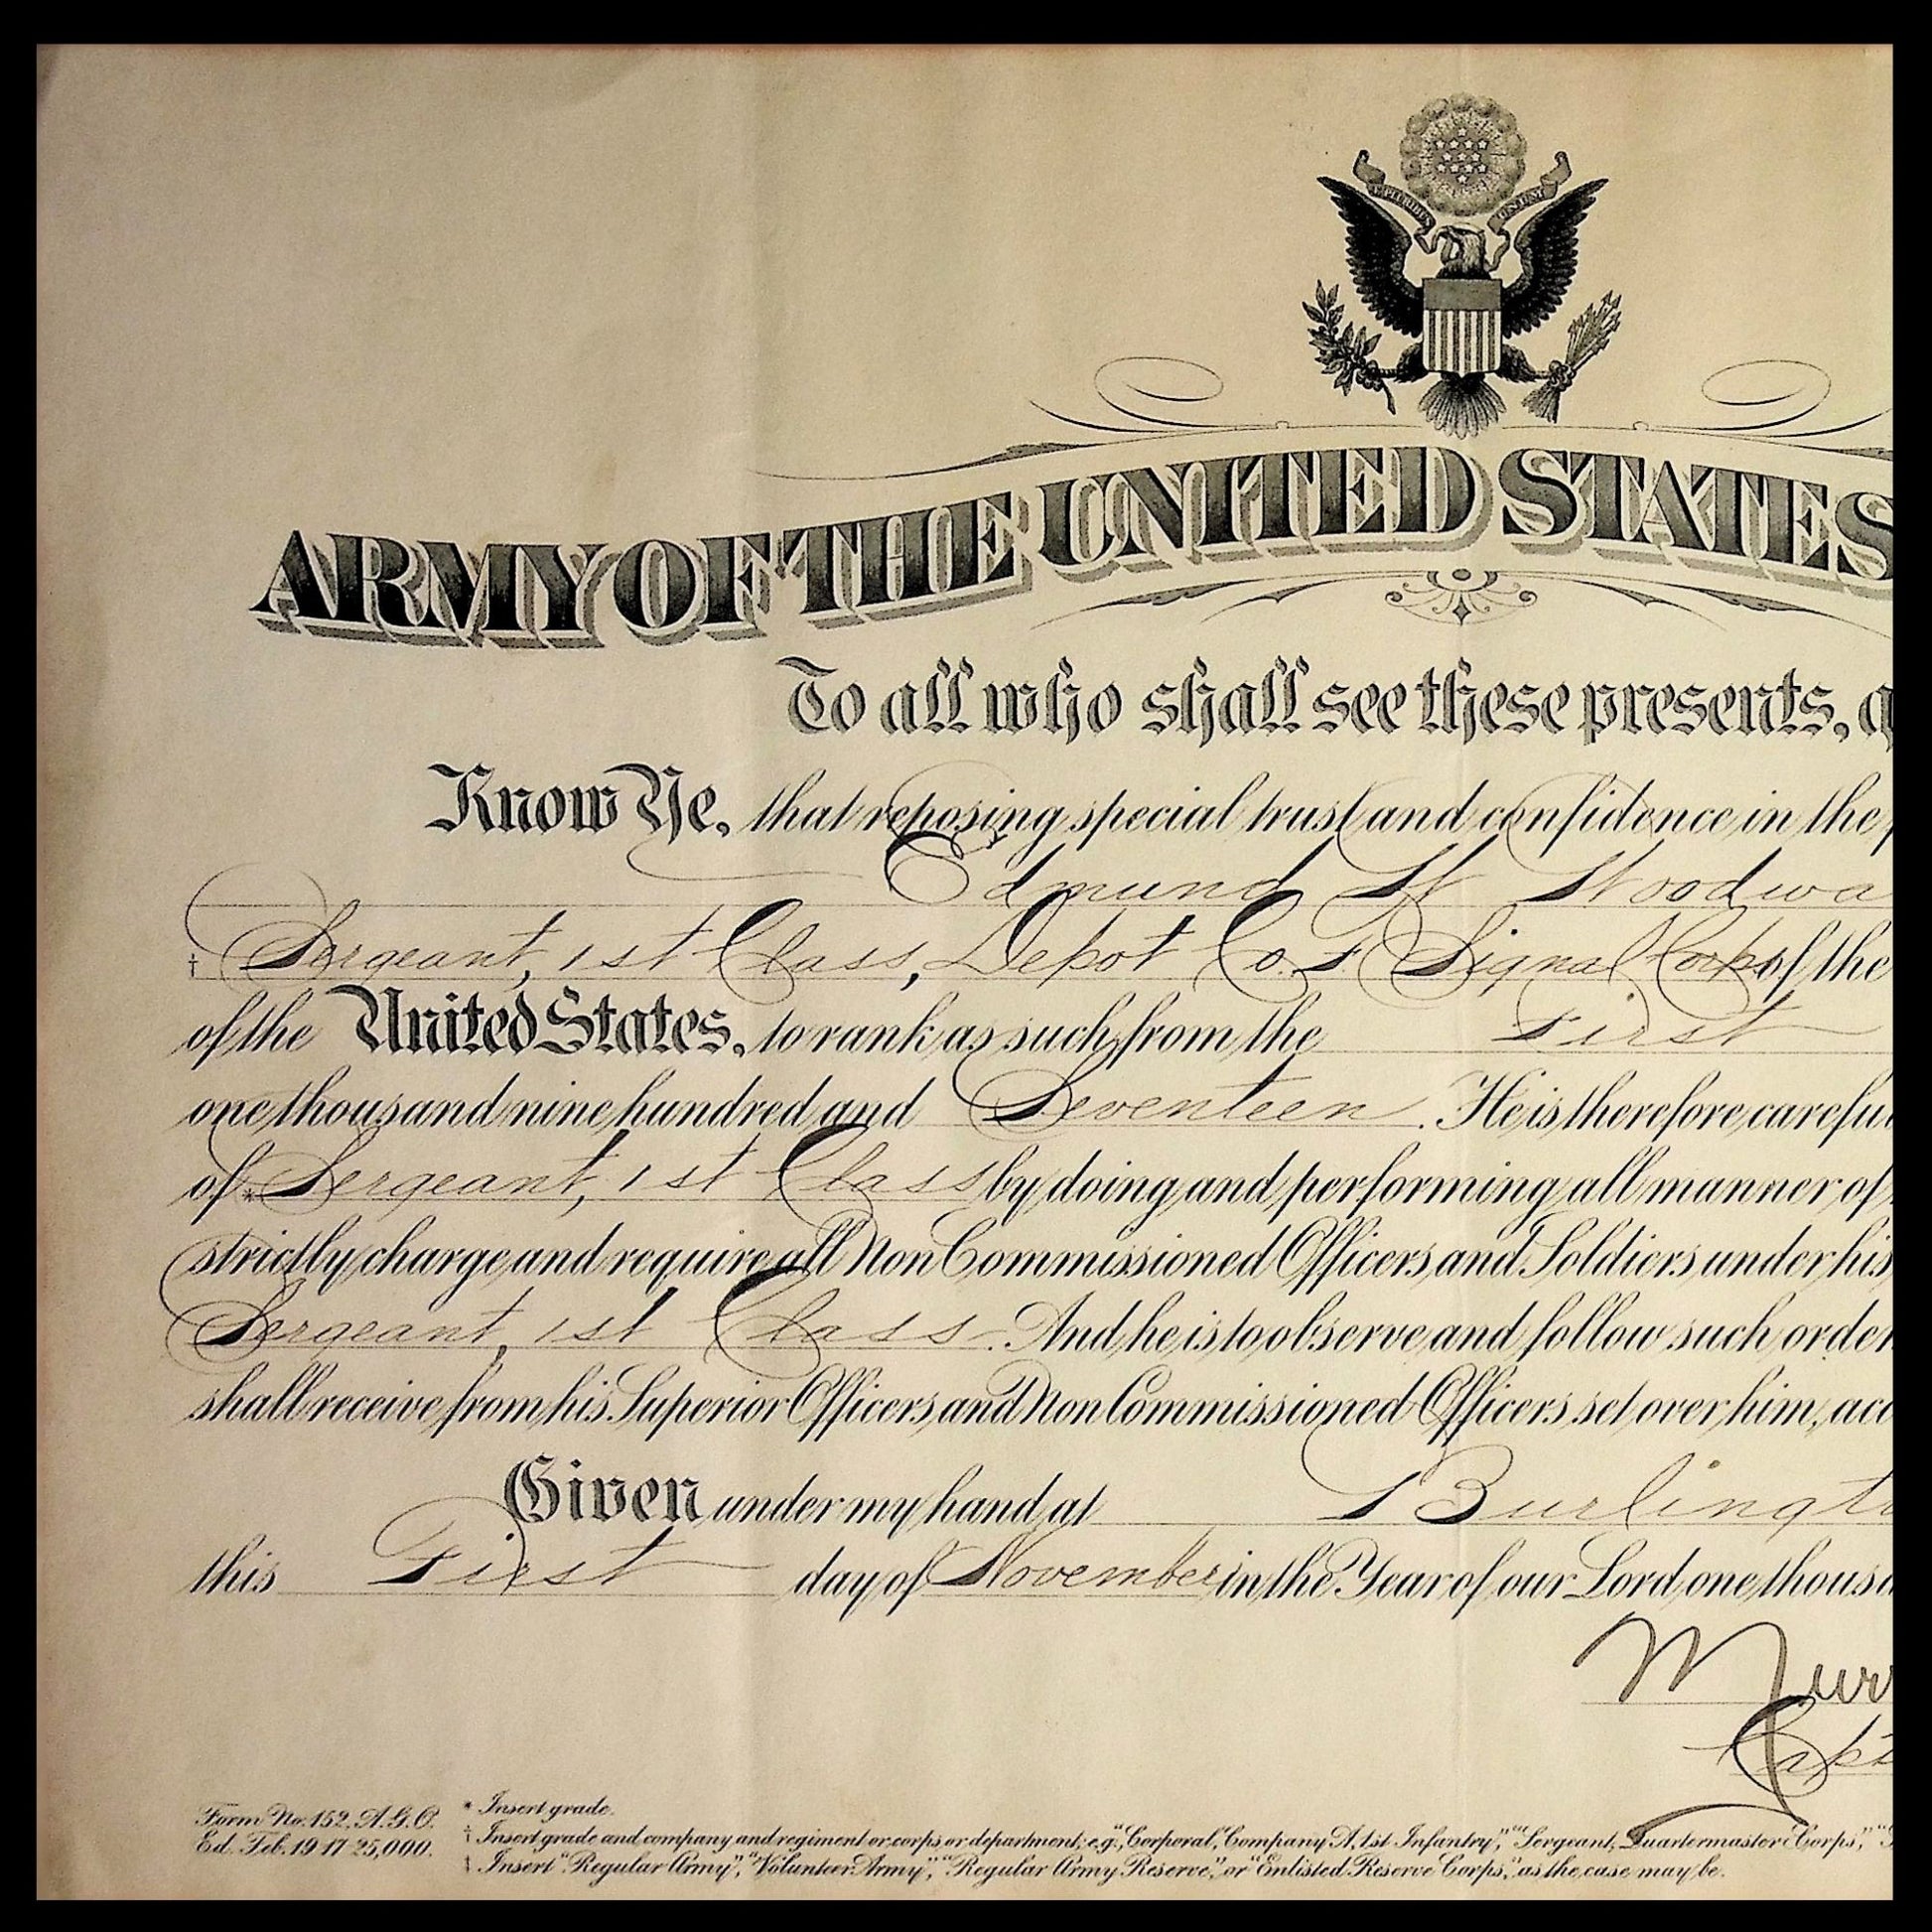 E PLURIBUS UNUM
ARMY OF THE UNITED STATES
To all who shall see these presents,
Know Ye, that reposing special trust and confidence in the
Edmund
† Sergeant, 1st Class, Depot Co. F. Signal Corps of the
of the United States, to rank as such from the First
one thousand nine hundred and Seventeen. He is therefore carefu
of * Sergeant, 1st Class by doing and performing all manner of
strictly charge and require all Non Commissioned Officers and Soldiers under his
Sergeant, 1st Class. And he is to observe and follow such order
shall receive from his Superior Officers and Non Commissioned Officers set over him, acc
Given under my hand at Burlingt
this First day of November in the Year of our Lord one thous
Murr
Capt
Form No. 152, A.G.O.
Ed. Feb. 19-17-25,000.
* Insert grade.
† Insert grade and company and regiment or corps or department; e.g., "Corporal, Company A, 1st Infantry," "Sergeant, Quartermaster Corps," "
‡ Insert "Regular Army", "Volunteer Army", "Regular Army Reserve," or "Enlisted Reserve Corps," as the case may be.